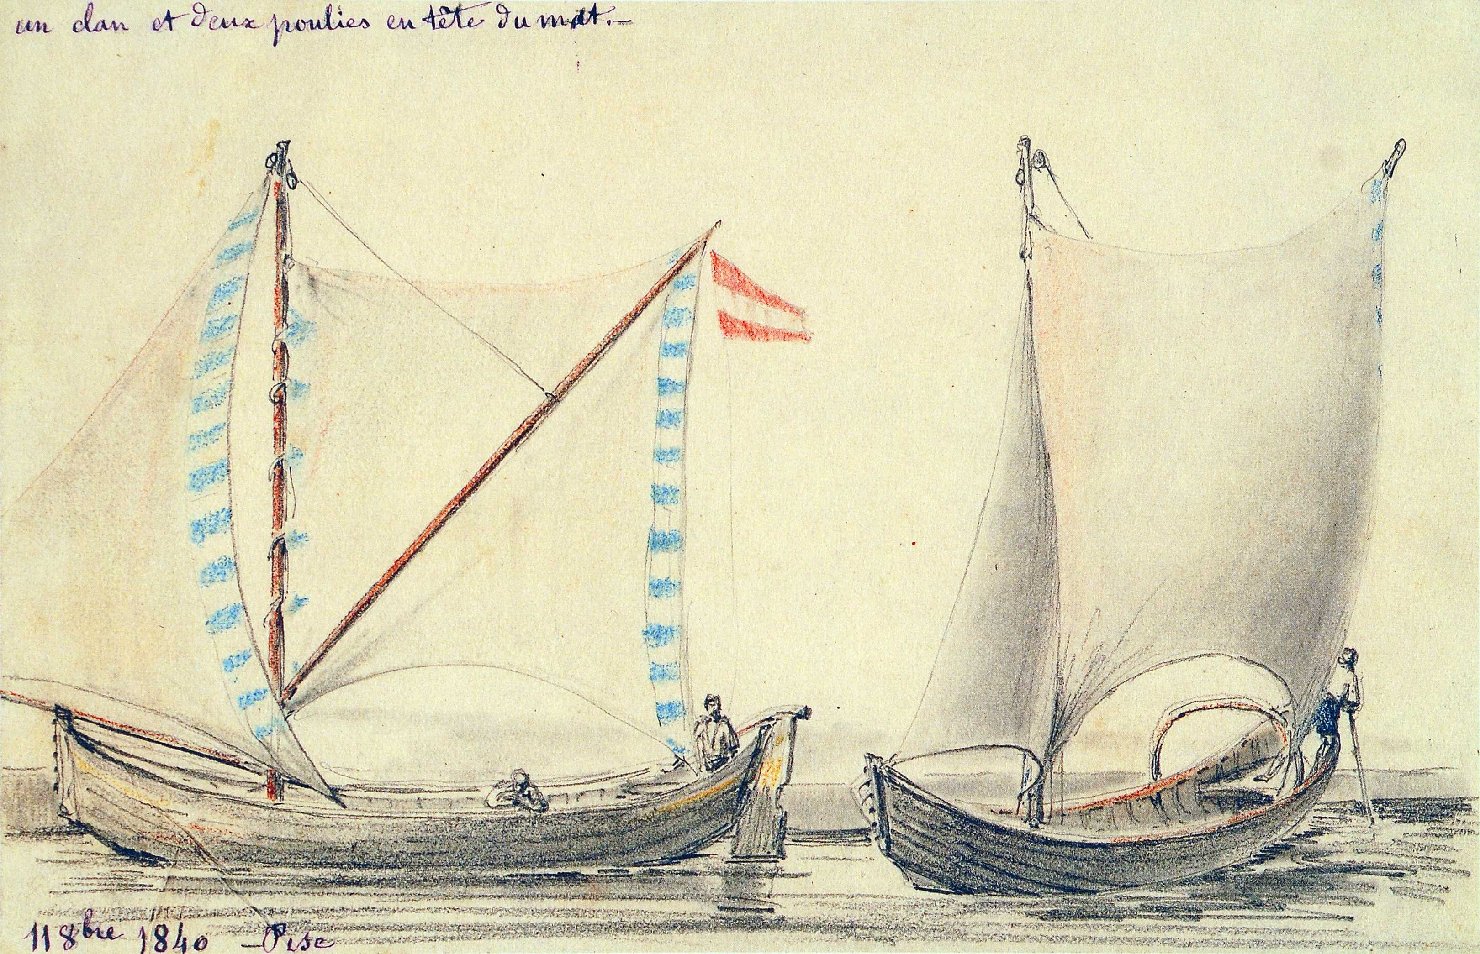 un clan et deux poulies en tête du mât.-
11 8bre 1840 - Pise